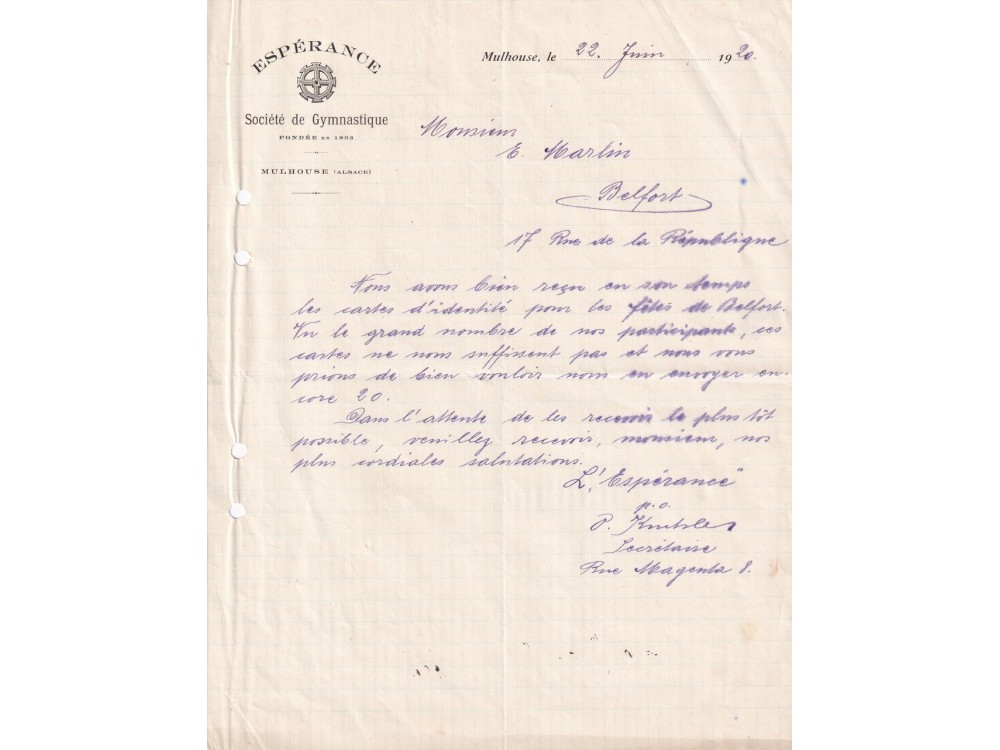 ESPÉRANCE
Société de Gymnastique
FONDÉE EN 1893
MULHOUSE (ALSACE)
Mulhouse, le 22. Juin 1920.
Monsieur
E. Marlin
Belfort
17 Rue de la République
Nous avons bien reçu en son temps
les cartes d'identité pour les fêtes de Belfort.
Vu le grand nombre de nos participants, ces
cartes ne nous suffissent pas et nous vous
prions de bien vouloir nous en envoyer en-
core 20.
Dans l'attente de les recevoir le plus tôt
possible, veuillez recevoir, monsieur, nos
plus cordiales salutations.
L'„Espérance"
p.o.
P.
Secrétaire
Rue Magenta 8.